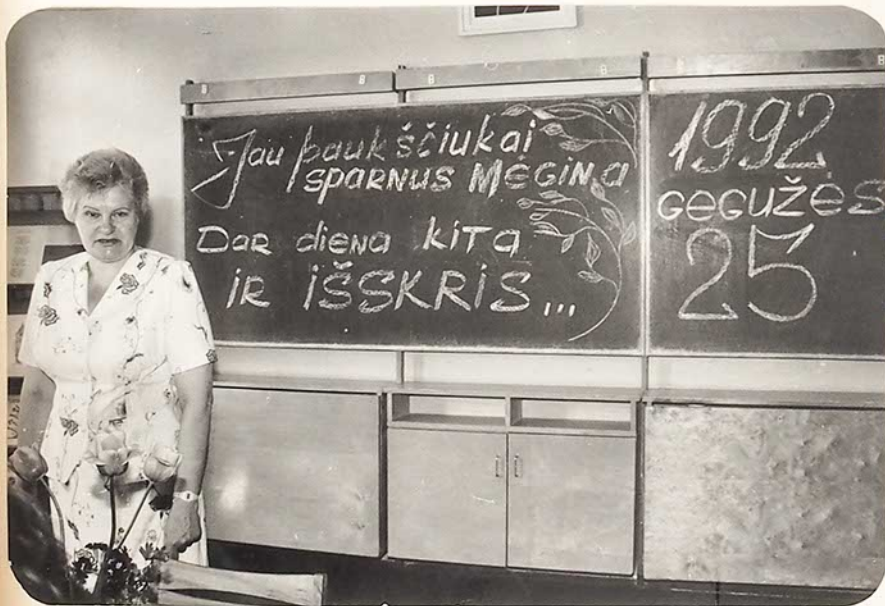 Jau paukščiukai
sparnus mėgina
Dar diena kita
ir išskris...
1992
gegužės
25